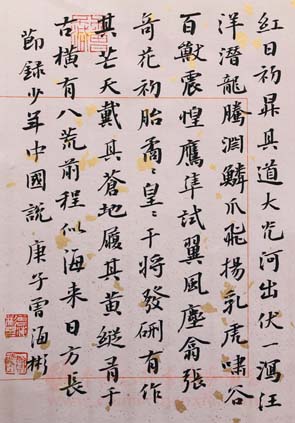 紅日初昇其道大光河出伏一瀉汪
洋潛龍騰淵鱗爪飛揚乳虎嘯谷
百獸震惶鷹隼試翼風塵翕張
奇花初胎矞〻皇〻干將發硎有作
其芒天戴其蒼地履其黃縱有千
古橫有八荒前程似海來日方長
節錄少年中國說 庚子曾海彬